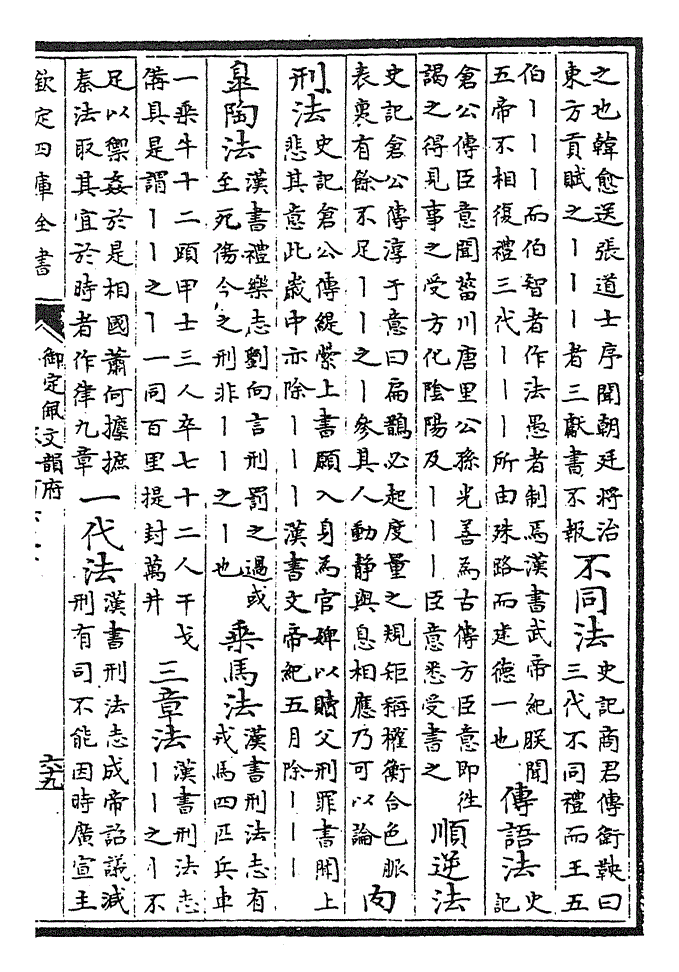 之也韓愈送張道士序聞朝廷將治
東方貢賦之丨丨丨者三獻書不報
不同法
史記商君傳衛鞅曰
三代不同禮而王五
伯丨丨丨而伯智者作法愚者制焉漢書武帝紀朕聞
五帝不相復禮三代丨丨丨所由殊路而建德一也
傳語法
史
記
倉公傳臣意聞菑川唐里公孫光善為古傳方臣意即往
謁之得見事之受方化陰陽及丨丨丨臣意悉受書之
順逆法
史記倉公傳淳于意曰扁鵲必起度量之規矩稱權衡合色脈
表裏有餘不足丨丨之丨參其人動靜與息相應乃可以論
肉
刑法
史記倉公傳緹縈上書願入身為官婢以贖父刑罪書聞上
悲其意此歲中亦除丨丨丨漢書文帝紀五月除丨丨丨
臯陶法
漢書禮樂志劉向言刑罰之過或
至死傷今之刑非丨丨之丨也
乗馬法
漢書刑法志有
戎馬四匹兵車
一乗牛十二頭甲士三人卒七十二人干戈
備具是謂丨丨之丨一同百里提封萬井
三章法
漢書刑法志
丨丨之丨不
足以禦姦於是相國蕭何攈摭
秦法取其宜於時者作律九章
一代法
漢書刑法志成帝詔議減
刑有司不能因時廣宣主
欽定四庫全書
御定佩文韻府
六十九